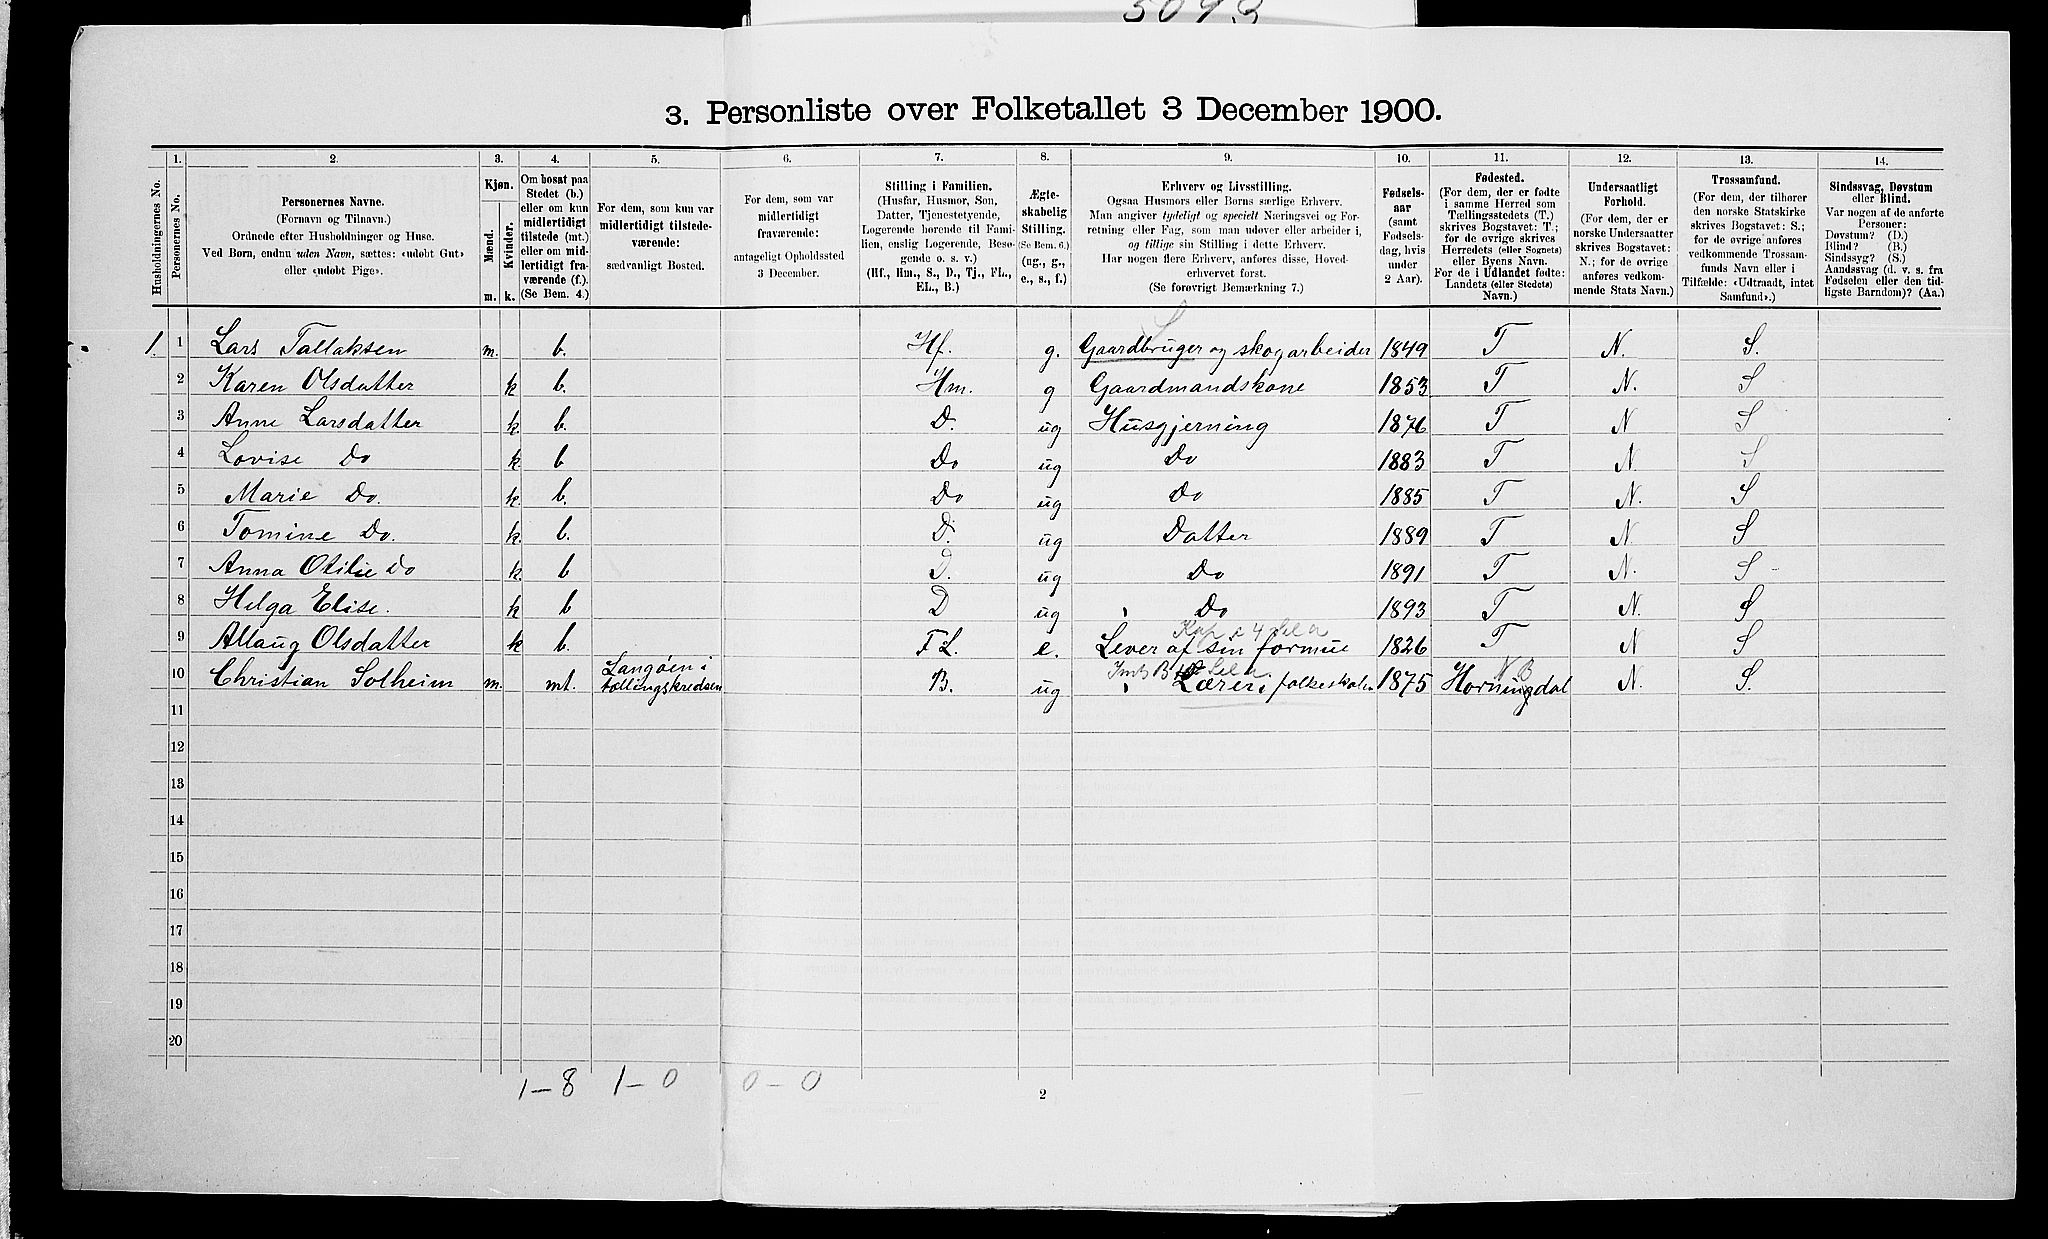 3. Personliste over Folketallet 3 December 1900.
1. 2. 3. 4. 5. 6. 7. 8. 9. 10. 11. 12. 13. 14.
Husholdningernes No.
Personernes No.
Personernes Navne.
(Fornavn og Tilnavn.)
Ordnede efter Husholdninger og Huse.
Ved Børn, endnu uden Navn, sættes: «udøbt Gut»
eller «udøbt Pige».
Kjøn.
Mænd.
Kvinder.
m. k.
Om bosat paa
Stedet (b.)
eller om kun
midlertidigt
tilstede (mt.)
eller om mid-
lertidigt fra-
værende (f.).
(Se Bem. 4.)
For dem, som kun var
midlertidigt tilstede-
værende:
sædvanligt Bosted.
For dem, som var
midlertidigt
fraværende:
antageligt Opholdssted
3 December.
Stilling i Familien.
(Husfar, Husmor, Søn,
Datter, Tjenestetyende,
Logerende hørende til Fami-
lien, enslig Logerende, Besø-
gende o. s. v.)
(Hf., Hm., S., D., Tj., FL.,
EL., B.)
Ægte-
skabelig
Stilling.
(Se Bem. 6.)
(ug., g.,
e., s., f.)
Erhverv og Livsstilling.
Ogsaa Husmors eller Børns særlige Erhverv.
Man angiver tydeligt og specielt Næringsvei og For-
retning eller Fag, som man udøver eller arbeider i,
og tillige sin Stilling i dette Erhverv.
Har nogen flere Erhverv, anføres disse, Hoved-
erhvervet først.
(Se forøvrigt Bemærkning 7.)
Fødsels-
aar
(samt
Fødsels-
dag, hvis
under
2 Aar).
Fødested.
(For dem, der er fødte
i samme Herred som
Tællingsstedets (T.)
skrives Bogstavet: T.;
for de øvrige skrives
Herredets (eller Sognets)
eller Byens Navn.
For de i Udlandet fødte:
Landets (eller Stedets)
Navn.)
Undersaatligt
Forhold.
(For dem, der er
norske Undersaatter
skrives Bogstavet:
N.; for de øvrige
anføres vedkom-
mende Stats Navn.)
Trossamfund.
(For dem, der tilhører
den norske Statskirke
skrives Bogstavet: S.;
for de øvrige anføres
vedkommende Trossam-
funds Navn eller i
Tilfælde: «Udtraadt, intet
Samfund».)
Sindssvag, Døvstum
eller Blind.
Var nogen af de anførte
Personer:
Døvstum? (D.)
Blind? (B.)
Sindssyg? (S.)
Aandssvag (d. v. s. fra
Fødselen eller den tid-
ligste Barndom)? (Aa.)
1. 1 Lars Tallaksen m. b. Hf. g. Gaardbruger og skogarbeider 1849 T N. S.
2 Karen Olsdatter k b. Hm. g Gaardmandskone 1853 T N. S
3 Anne Larsdatter k. b. D. ug Husgjerning 1876 T N S
4 Lovise Do k. b Do ug Do 1883 T N. S
5 Marie Do. k. b. Do ug Do 1885 T N. S
6 Tomine Do. k. b. D. ug Datter 1889 T N S
7 Anna Otilie Do k. b D. ug Do 1891 T N. S
8 Helga Elise. k b D ug Do 1893 T N. S
9 Allaug Olsdatter k b. F L. e. Lever af sin formue 1826 T N S
10 Christian Solheim m. mt. Langøen i tællingskredsen B. ug Lærer i folkeskolen 1875 Horningdal N B N. S.
11
12
13
14
15
16
17
18
19
20
1-8 1-0 0-0
2